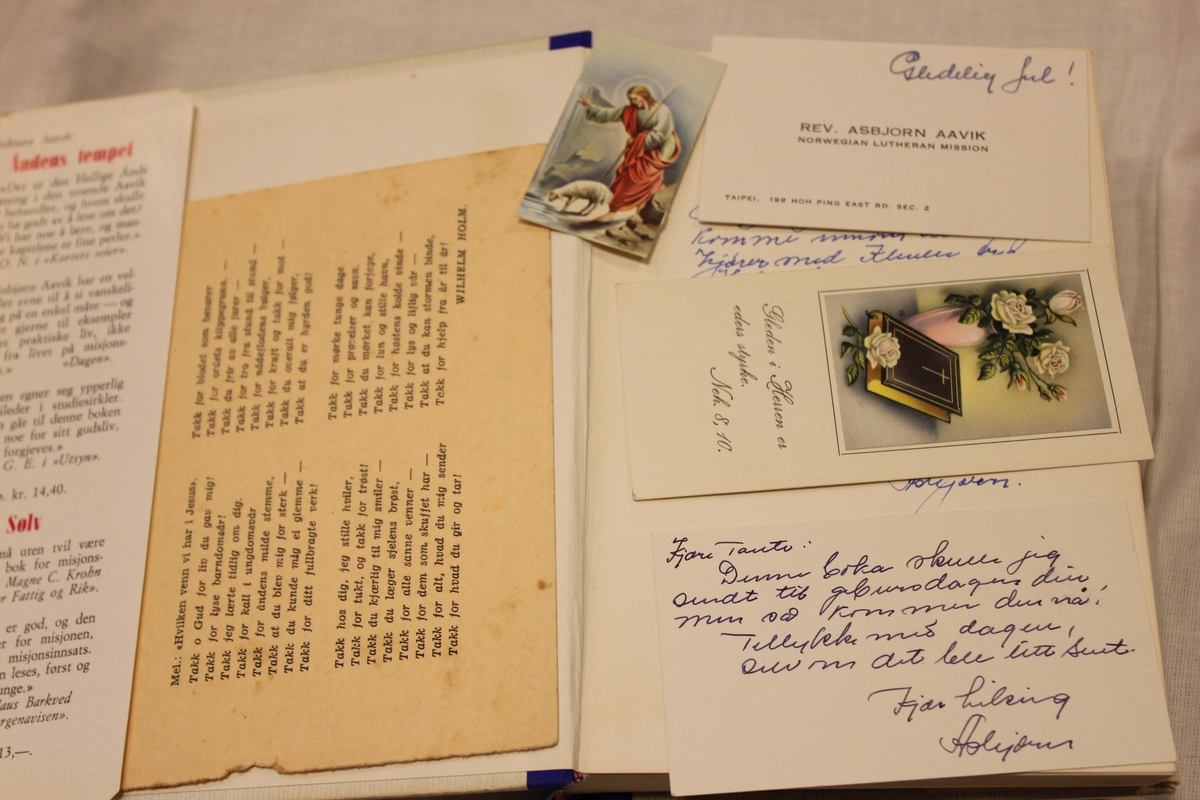 Asbjørn Aavik:
Åndens tempel
«Det er den Hellige Ånds
i den troende Aavik
behandler, og hvem skulle
ha godt av å lese om det?
har noe å lære, og man-
kapitlene er fine perler.»
O. N. i «Korsets seier».
Asbjørn Aavik har en vel-
evne til å si vanskeli-
på en enkel måte — og
gjerne til eksempler
praktiske liv, ikke
fra livet på misjons-
«Dagen».
egner seg ypperlig
i studiesirkler.
går til denne boken
noe for sitt gudsliv,
forgjeves.»
G. E. i «Utsyn».
kr. 14,40.
Sølv
må uten tvil være
bok for misjons-
Magne C. Krohn
Fattig og Rik».
er god, og den
for misjonen,
misjonsinnsats.
leses, først og
unge.»
Barkved
13,—.
Mel.: «Hvilken venn vi har i Jesus».
Takk o Gud for liv du gav mig!
Takk for lyse barndomsår!
Takk jeg lærte tidlig om dig.
Takk for kall i ungdomsvår
Takk for åndens milde stemme,
Takk at du blev mig for sterk —
Takk du kunde mig ei glemme —
Takk for ditt fulbragte verk!
Takk hos dig, jeg stille hviler,
Takk for tukt, og takk for trøst!
Takk du kjærlig til mig smiler —
Takk du læger sjelens brøst,
Takk for alle sanne venner —
Takk for dem som skuffet har —
Takk for alt, hvad du mig sender
Takk for hvad du gir og tar!
Takk for blodet som bevarer
Takk for ordets klippegrunn, —
Takk du frir av alle farer —
Takk for tro fra stund til stund —
Takk for nådeflodens bølger,
Takk for kraft og takk for mot —
Takk du overalt mig følger,
Takk, at du er hyrden god!
Takk for mørke tunge dage
Takk for prøvelser og savn.
Takk du mørket kan forjage,
Takk for lun og stille havn,
Takk for høstens kolde vinde —
Takk for lys og liflig vår —
Takk at du kan stormen binde,
Takk for hjelp fra år til år!
WILHELM HOLM.
Gledelig Jul!
REV. ASBJORN AAVIK
NORWEGIAN LUTHERAN MISSION
TAIPEI, 199 HOH PING EAST RD. SEC. 2
Gleden i Herren er
eders styrke.
Neh. 8, 10.
Asbjørn.
Kjære Tante!
Denne boka skulle jeg
sendt til geburtsdagen din
men så kommer den nå!
Tillykke med dagen,
selv om det ble litt sent.
Kjær hilsing
Asbjørn